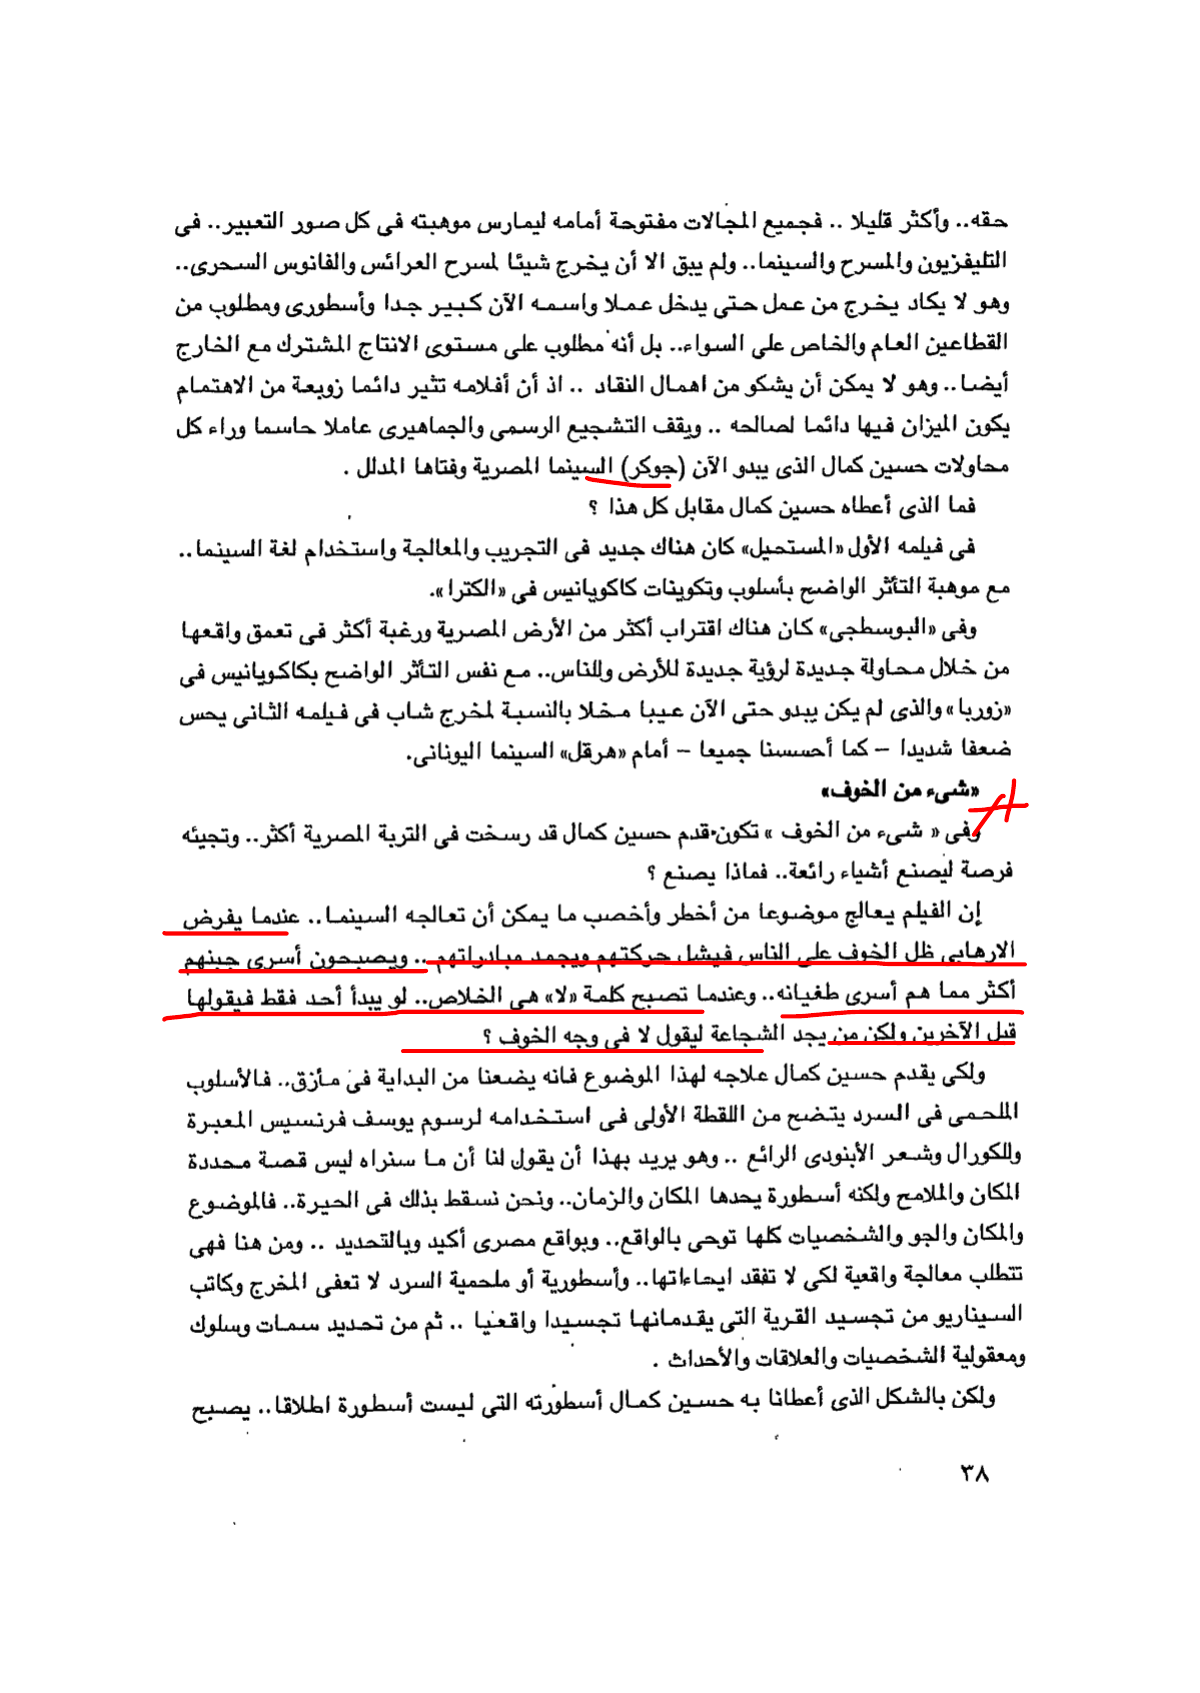 حقه.. وأكثر قليلا .. فجميع المجالات مفتوحة أمامه ليمارس موهبته فى كل صور التعبير.. فى
التليفزيون والمسرح والسينما.. ولم يبق الا أن يخرج شيئا لمسرح العرائس والفانوس السحرى..
وهو لا يكاد يخرج من عمل حتى يدخل عملا واسمه الآن كبير جدا وأسطورى ومطلوب من
القطاعين العام والخاص على السواء.. بل أنه مطلوب على مستوى الانتاج المشترك مع الخارج
أيضا.. وهو لا يمكن أن يشكو من اهمال النقاد .. اذ أن أفلامه تثير دائما زوبعة من الاهتمام
يكون الميزان فيها دائما لصالحه .. ويقف التشجيع الرسمى والجماهيرى عاملا حاسما وراء كل
محاولات حسين كمال الذى يبدو الآن (جوكر) السينما المصرية وفتاها المدلل .
فما الذى أعطاه حسين كمال مقابل كل هذا ؟
فى فيلمه الأول «المستحيل» كان هناك جديد فى التجريب والمعالجة واستخدام لغة السينما..
مع موهبة التأثر الواضح بأسلوب وتكوينات كاكويانيس فى «الكترا».
وفى «البوسطجى» كان هناك اقتراب أكثر من الأرض المصرية ورغبة أكثر فى تعمق واقعها
من خلال محاولة جديدة لرؤية جديدة للأرض وللناس.. مع نفس التأثر الواضح بكاكويانيس فى
«زوربا» والذى لم يكن يبدو حتى الآن عيبا مخلا بالنسبة لمخرج شاب فى فيلمه الثانى يحس
ضعفا شديدا – كما أحسسنا جميعا – أمام «هرقل» السينما اليونانى.
«شىء من الخوف»
وفى « شىء من الخوف » تكون قدم حسين كمال قد رسخت فى التربة المصرية أكثر.. وتجيئه
فرصة ليصنع أشياء رائعة.. فماذا يصنع ؟
إن الفيلم يعالج موضوعا من أخطر وأخصب ما يمكن أن تعالجه السينما.. عندما يفرض
الارهابى ظل الخوف على الناس فيشل حركتهم ويجمد مبادراتهم .. ويصبحون أسرى جبنهم
أكثر مما هم أسرى طغيانه.. وعندما تصبح كلمة «لا» هى الخلاص.. لو يبدأ أحد فقط فيقولها
قبل الآخرين ولكن من يجد الشجاعة ليقول لا فى وجه الخوف ؟
ولكى يقدم حسين كمال علاجه لهذا الموضوع فانه يضعنا من البداية فى مأزق.. فالأسلوب
الملحمى فى السرد يتضح من اللقطة الأولى فى استخدامه لرسوم يوسف فرنسيس المعبرة
وللكورال وشعر الأبنودى الرائع .. وهو يريد بهذا أن يقول لنا أن ما سنراه ليس قصة محددة
المكان والملامح ولكنه أسطورة يحدها المكان والزمان.. ونحن نسقط بذلك فى الحيرة.. فالموضوع
والمكان والجو والشخصيات كلها توحى بالواقع.. وبواقع مصرى أكيد وبالتحديد .. ومن هنا فهى
تتطلب معالجة واقعية لكى لا تفقد ايحاءاتها.. وأسطورية أو ملحمية السرد لا تعفى المخرج وكاتب
السيناريو من تجسيد القرية التى يقدمانها تجسيدا واقعيا .. ثم من تحديد سمات وسلوك
ومعقولية الشخصيات والعلاقات والأحداث .
ولكن بالشكل الذى أعطانا به حسين كمال أسطورته التى ليست أسطورة اطلاقا.. يصبح
٣٨